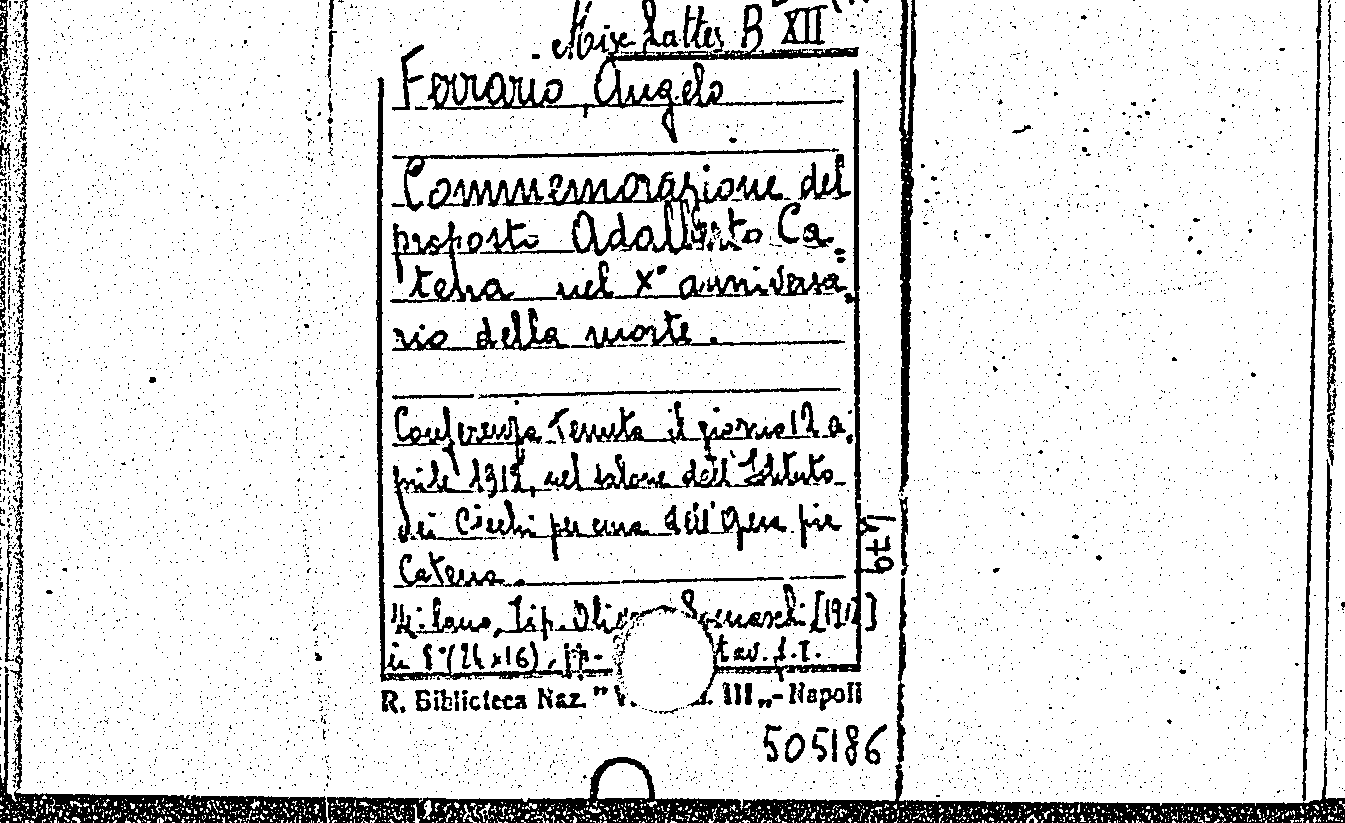 Misc Lattes B XII
Ferrario, Angelo
Commemorazione del
proposto Adalberto Ca=
tena nel X° anniversa=
rio della morte.
Conferenza tenuta il giorno 12 a=
prile 1912, nel salone dell'Istituto
dei Ciechi per cura dell'Opera pia
Catena.
Milano, Tip.
in 8° (24x16), pp. tav. f.t.
R. Biblioteca Naz. " V. III „ - Napoli
505186